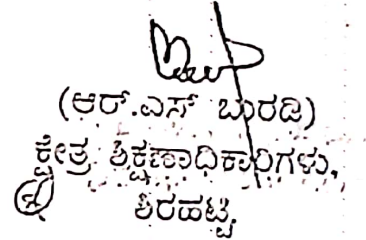 (ಆರ್.ಎಸ್ ಬುರಡಿ)
ಕ್ಷೇತ್ರ ಶಿಕ್ಷಣಾಧಿಕಾರಿಗಳು,
ಶಿರಹಟ್ಟಿ